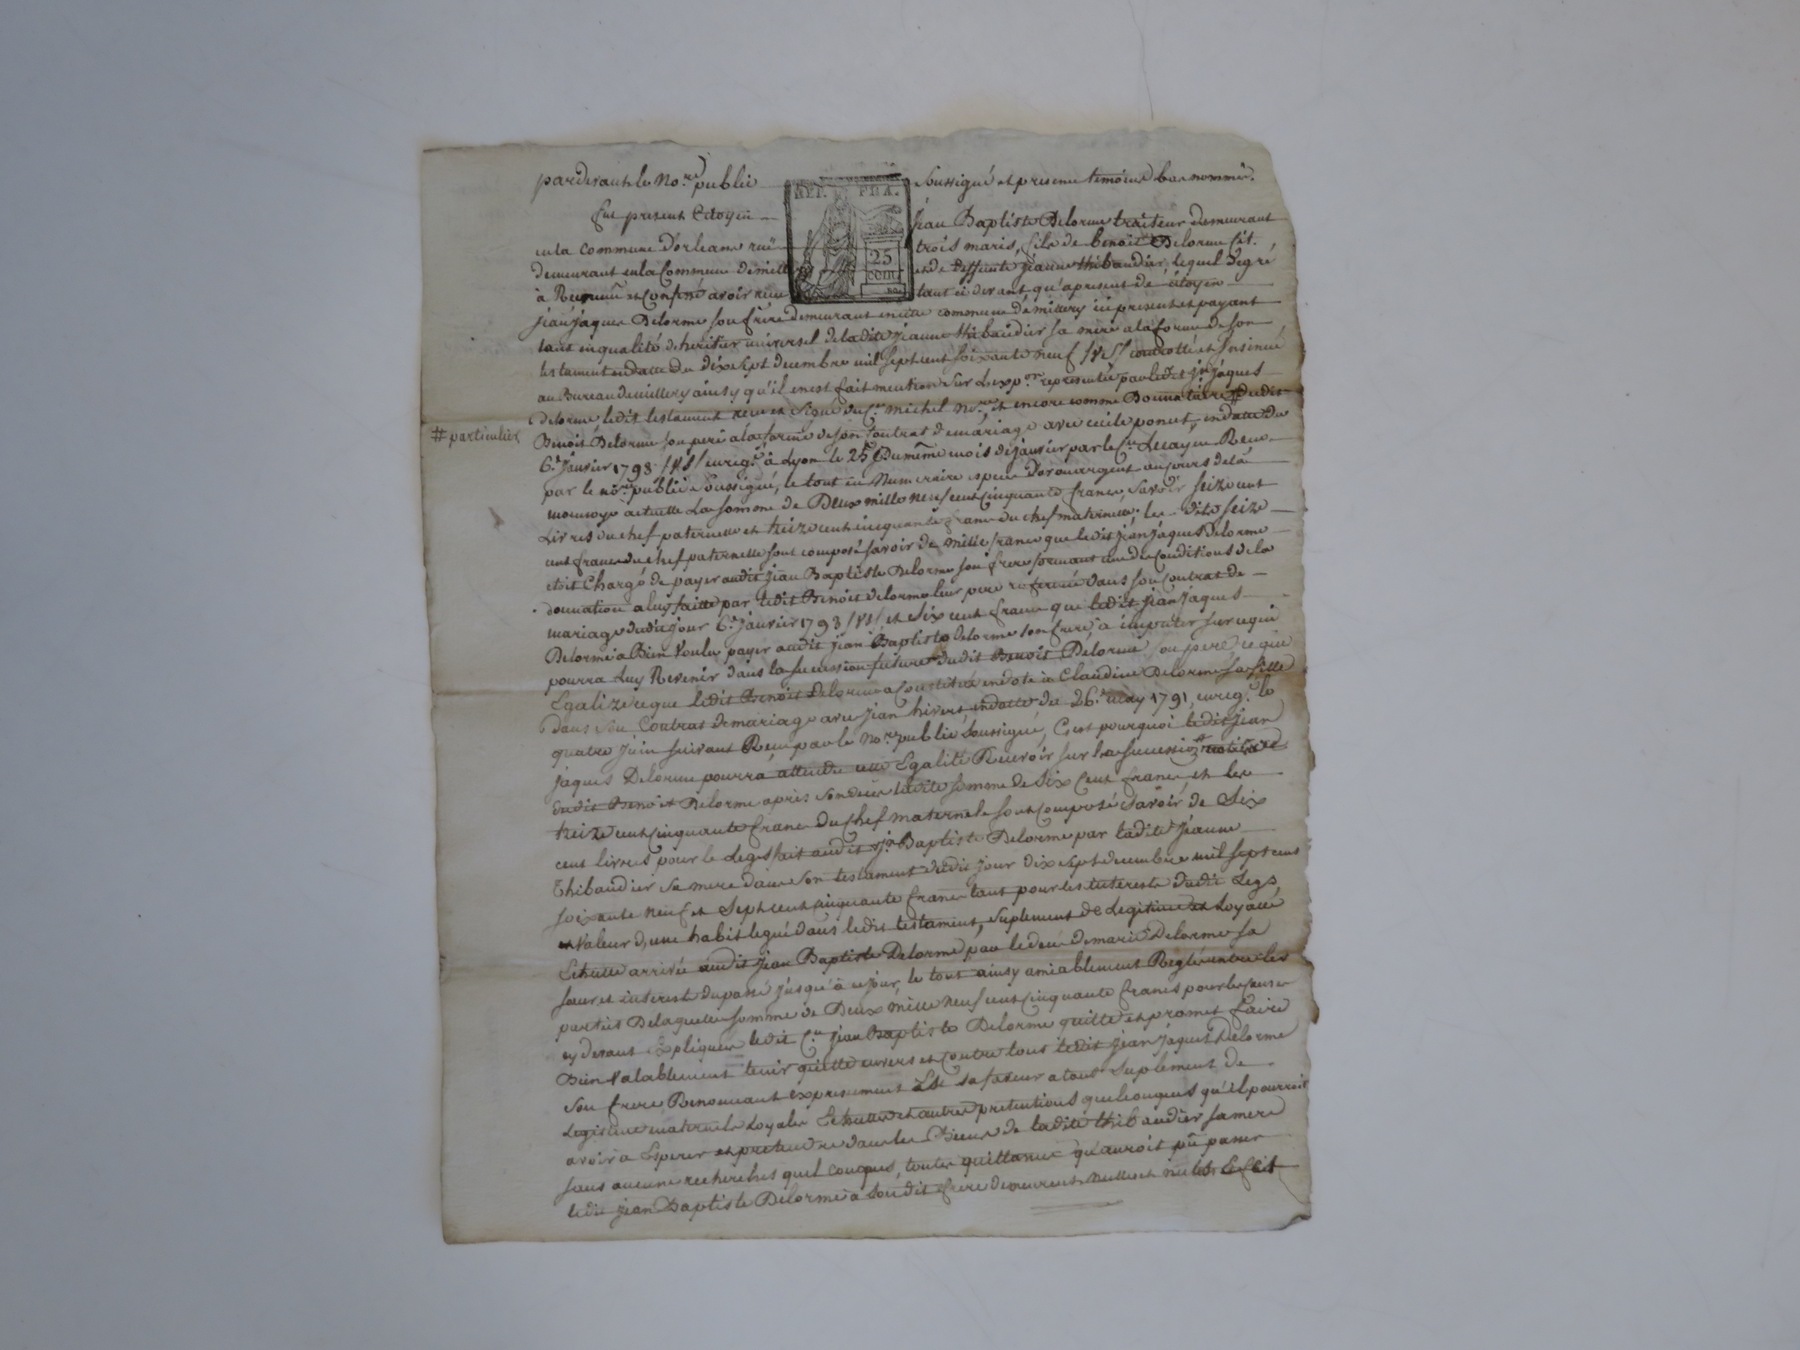 pardevant le No.re public soussigné et presens temoins bas nommés.
fut present Citoyen Jean Baptiste Delorme traiteur demeurant
REP. FRA.
25
cent.
en la commune d'orleans ruë trois maris, fils de benoit Delorme Cit.
demeurant en la Commune de mill et de deffunte jeanne thibaudier, lequel de gré
à Reconnu et Confessé avoir reçu tant ci devant qu'apresent de citoyen
jean jaques Delorme son frère demeurant en cette commune de millery ici present et payant
tant en qualité d'heritier universel de ladite jeanne thibaudier sa mère a la forme de son
testament en datte du dix sept decembre mil sept cent soixante neuf /VS/ controllé et insinué
au Bureau de millery ainsy qu'il en est fait mention sur l'exp.on representée par ledit jn jaques
delorme, ledit testament recu et signé du C.en michel No.re et encore comme Donnataire # dudit
# particulier
Benoit Delorme son pere a la forme de son contrat de mariage avec cecile poncet, en datte du
6.e janvier 1793 /VS/ enreg.é à Lyon le 25 Du même mois de janvier par le C.en Lecayeu Recu
par le no.re public soussigné, le tout en Numeraire espece d'or ou argent au cours de la
monnoye actuelle La somme de Deux mille neuf cent cinquante francs, savoir seize cent
Livres du chef paternelle et treize cent cinquante francs du chef maternelle; les dits seize
cent francs du chef paternelle sont composé savoir de mille francs que ledit jean jaques Delorme
etoit Chargé de payer audit jean Baptiste Delorme son frere formant une des conditions de la
donnation a luy faitte par ledit Benoit delorme leur pere referée dans son Contrat de
mariage dudit jour 6.e janvier 1793 /VS/ et six cent francs que ledit jean jaques
Delorme a Bien Voulu payer audit jean Baptiste delorme son frere, à imputer sur ce qui
pourra Luy Revenir dans la succession future dudit Benoit Delorme son pere, ce qui
Egalize ce que ledit Benoit Delorme a Constitué en dote à Claudine Delorme sa fille
dans son Contrat de mariage avec jean hivert, en datte du 26.e may 1791, enreg.é le
quatre juin suivant Recu par le No.re public soussigné, C'est pourquoi ledit jean
jaques Delorme pourra, attendu cette Egalité Recevoir sur la succession
dudit Benoit Delorme après son deces ladite somme de six Cent francs et les
treize cent cinquante francs du chef maternele sont composé savoir de six
cent livres pour le Legs fait audit jn Baptiste Delorme par ladite jeanne
thibaudier sa mere dans son testament dudit jour dix sept decembre mil sept cent
soixante neuf et sept cent cinquante francs tant pour les interests dudit Legs
et valeur d'une habit legué dans ledit testament, suplement de Legitime et Loyalle
Echutte arrivée audit jean Baptiste Delorme par le deces de marie Delorme sa
sœur et interests du passé jusqu'à ce jour, le tout ainsy amiablement Reglé entre les
parties De laquelle somme de Deux mille neuf cent cinquante francs pour les causes
cy devant Expliquées ledit C.en jean Baptiste Delorme quitte et promet faire
Bien Valablement tenir quitte envers et Contre tous ledit jean jaques Delorme
son frere Renonçant expressement En sa faveur a tout suplement de
Legitime maternele Loyales Echuttes et autres pretentions quelconques qu'il pourroit
avoir à Esperer et pretendre dans les Biens de ladite thibaudier sa mere
sans aucune recherches quel conques, toutes quittances qu'auroit pû passer
ledit jean Baptiste Delorme à son dit frere demeurent nulles et